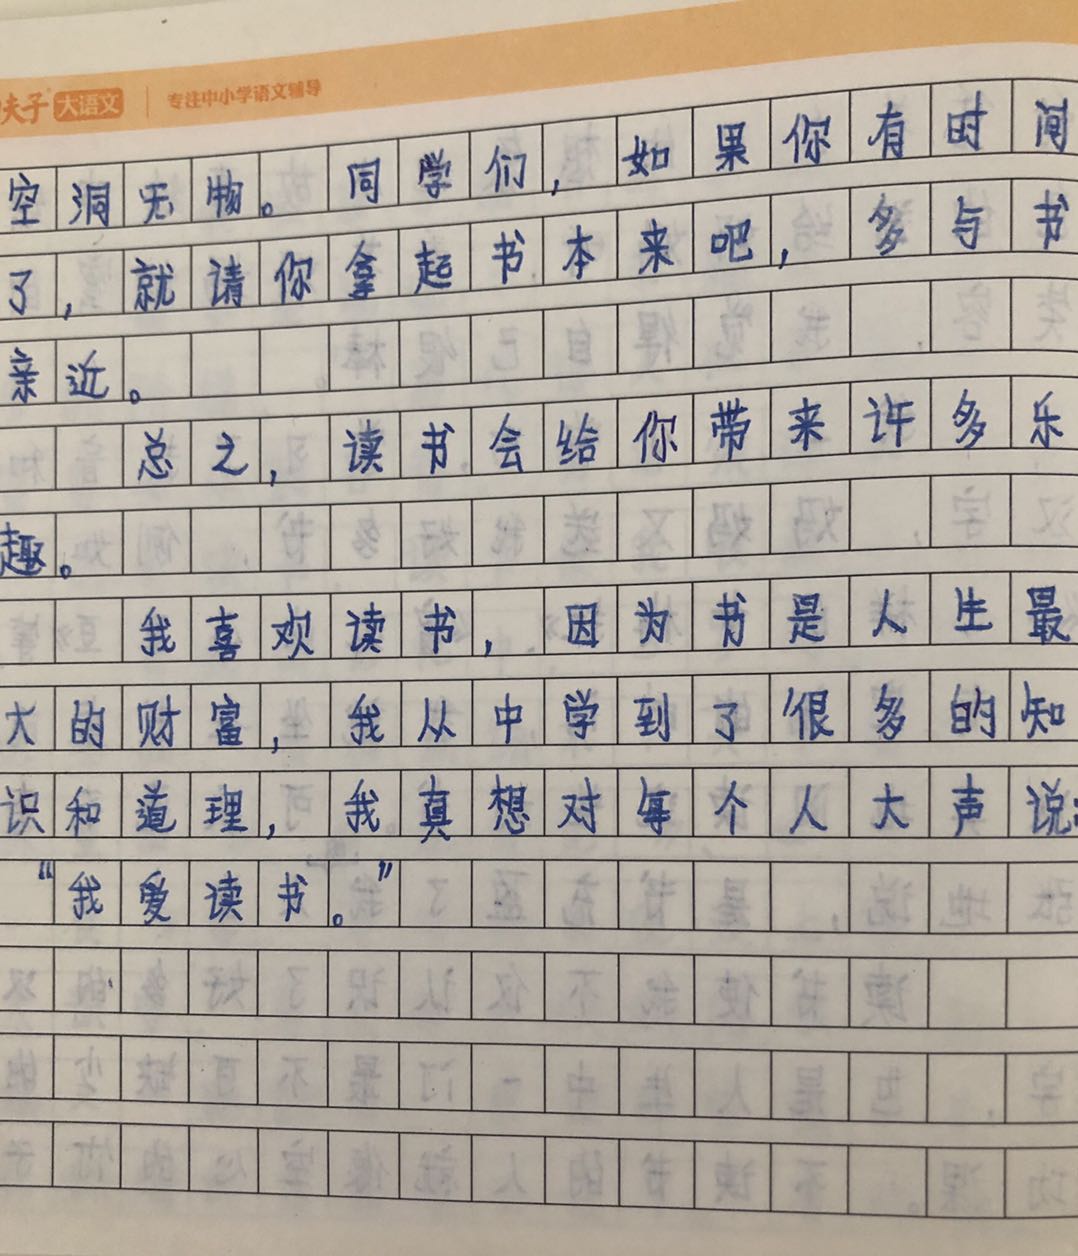 夫子 大语文 专注中小学语文辅导
空洞无物。同学们，如果你有时间
了，就请你拿起书本来吧，多与书
亲近。
总之，读书会给你带来许多乐
趣。
我喜欢读书，因为书是人生最
大的财富，我从中学到了很多的知
识和道理，我真想对每个人大声说：
“我爱读书。”